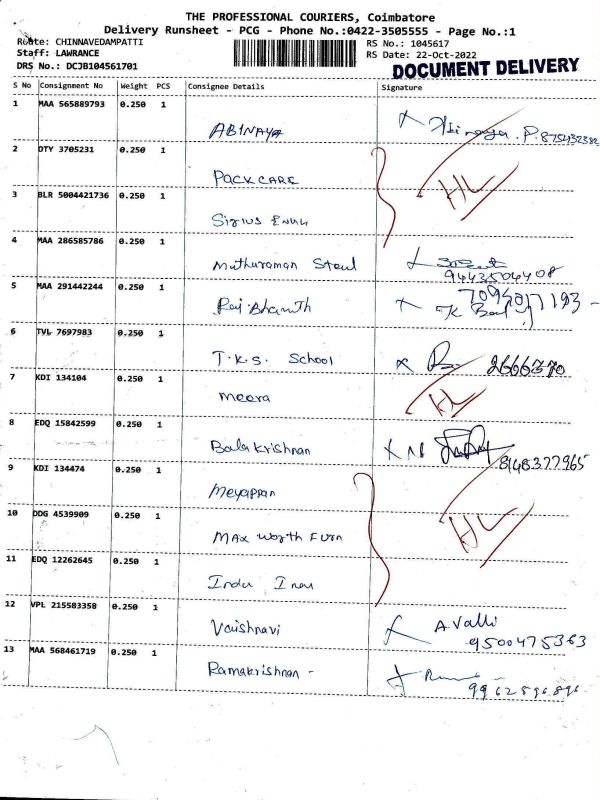 THE PROFESSIONAL COURIERS, Coimbatore
Delivery Runsheet - PCG - Phone No.:0422-3505555 - Page No.:1
Route: CHINNAVEDAMPATTI
Staff: LAWRANCE
DRS No.: DCJB104561701
RS No.: 1045617
RS Date: 22-Oct-2022
DOCUMENT DELIVERY
S No Consignment No Weight PCS Consignee Details Signature
1 MAA 565889793 0.250 1
ABINAYA
2 DTY 3705231 0.250 1
PACK CARE HL
3 BLR 5004421736 0.250 1
Sirius
4 MAA 286585786 0.250 1
Muthuraman Steul
9443504408
5 MAA 291442244 0.250 1
7094017193 -
Raj Bharath
6 TVL 7697983 0.250 1
T.K.S. School 2666370
7 KDI 134104 0.250 1
Meera HL
8 EDQ 15842599 0.250 1
Balakrishnan
8148377965
9 KDI 134474 0.250 1
Meyappan
10 DDG 4539909 0.250 1
Max Worth Furn HL
11 EDQ 12262645 0.250 1
Indu
12 VPL 215583358 0.250 1
Vaishnavi A.Valli
9500475363
13 MAA 568461719 0.250 1
Ramakrishnan -